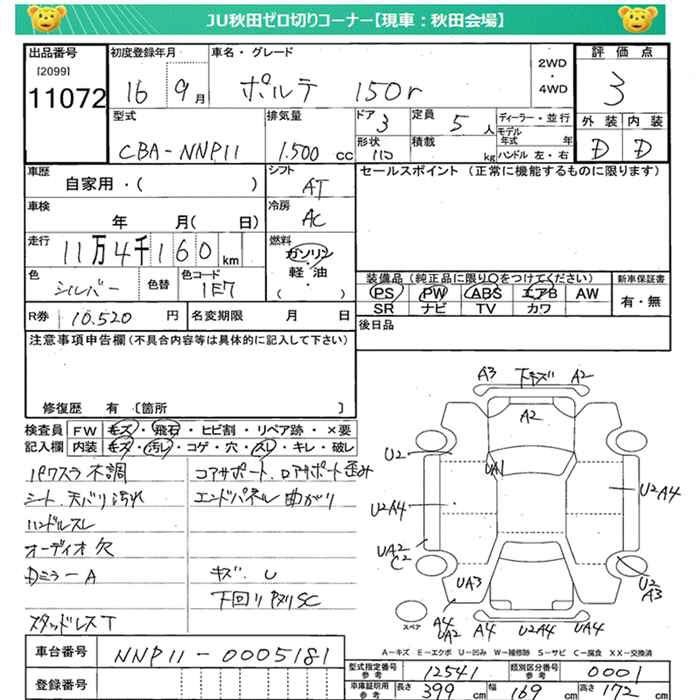 JU秋田ゼロ切りコーナー【現車：秋田会場】
出品番号 初度登録年月 車名・グレード 評価点
[2099]
11072 16 9月 ポルテ 150r 2WD・4WD 3
型式 排気量 ドア 定員 ディーラー・並行 外装 内装
CBA-NNP11 1.500cc 3 5人 モデル年式 年 D D
形状 積載 kg ハンドル 左・右
車歴 シフト セールスポイント（正常に機能するものに限ります）
自家用・( ) AT
車検 冷房
年 月( 日) AC
走行 燃料
11万4千160km ガソリン
軽油
・
( )
色 色替 色コード 装備品（純正品に限り○をつけてください） 新車保証書
シルバー 1E7 PS PW ABS エアB AW 有・無
SR ナビ TV カワ
R券 10.520円 名変期限 月 日 後日品
注意事項申告欄（不具合内容等は具体的に記入して下さい）
修復歴 有 〔箇所 〕
検査員 FW キズ・飛石・ヒビ割・リペア跡・×要
記入欄 内装 キズ・汚レ・コゲ・穴・スレ・キレ・破レ
パワスラ不調 コアサポート、ロアサポート歪み
シート、天バリ汚れ エンドパネル曲がり
ハンドルスレ
オーディオ欠
Dミラー A キズ、U
下回り SC
スタッドレスT
A3 下キズ A2
A2
U2 UA1
U2A4 U2A4
UA2
C2
UA3 U2
A3
スペア A4
UA2 A4 U2A4 UA4
A-キズ E-エクボ U-凹み W-補修跡 S-サビ C-腐食 XX-交換済
車台番号 NNP11-0005181
登録番号
型式指定番号 参考 12541 類別区分番号 参考 0001
車庫証明用 参考 長さ 399cm 幅 169cm 高さ 172cm